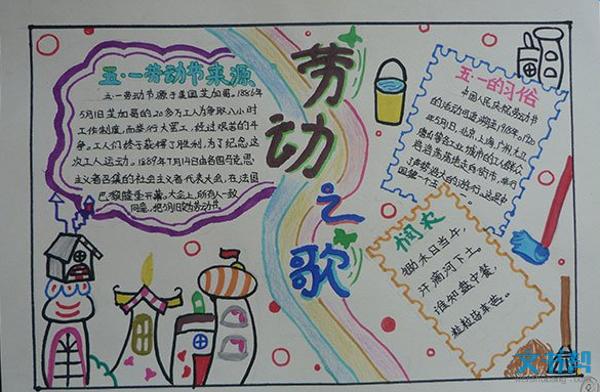 五·一劳动节来源
五·一劳动节源于美国芝加哥。1886年
5月1日芝加哥的20多万工人为争取八小时
工作制度,而举行大罢工,经过艰苦的斗
争。工人们终于获得了胜利,为了纪念这
次工人运动。1889年7月14日由各国马克思
主义者召集的社会主义者代表大会,在法国
巴黎隆重开幕。大会上,所有人一致
同意,把5月1日定为劳动节。
劳动之歌
五·一的习俗
中国人民庆祝劳动节
的活动可追溯至1918年。1920
年5月1日,北京、上海、广州、九江、
唐山等各工业城市的工人群众
浩浩荡荡地走向街市,举行
了声势浩大的游行。这是中
国第一个
悯农
锄禾日当午,
汗滴河下土。
谁知盘中餐,
粒粒皆辛苦。